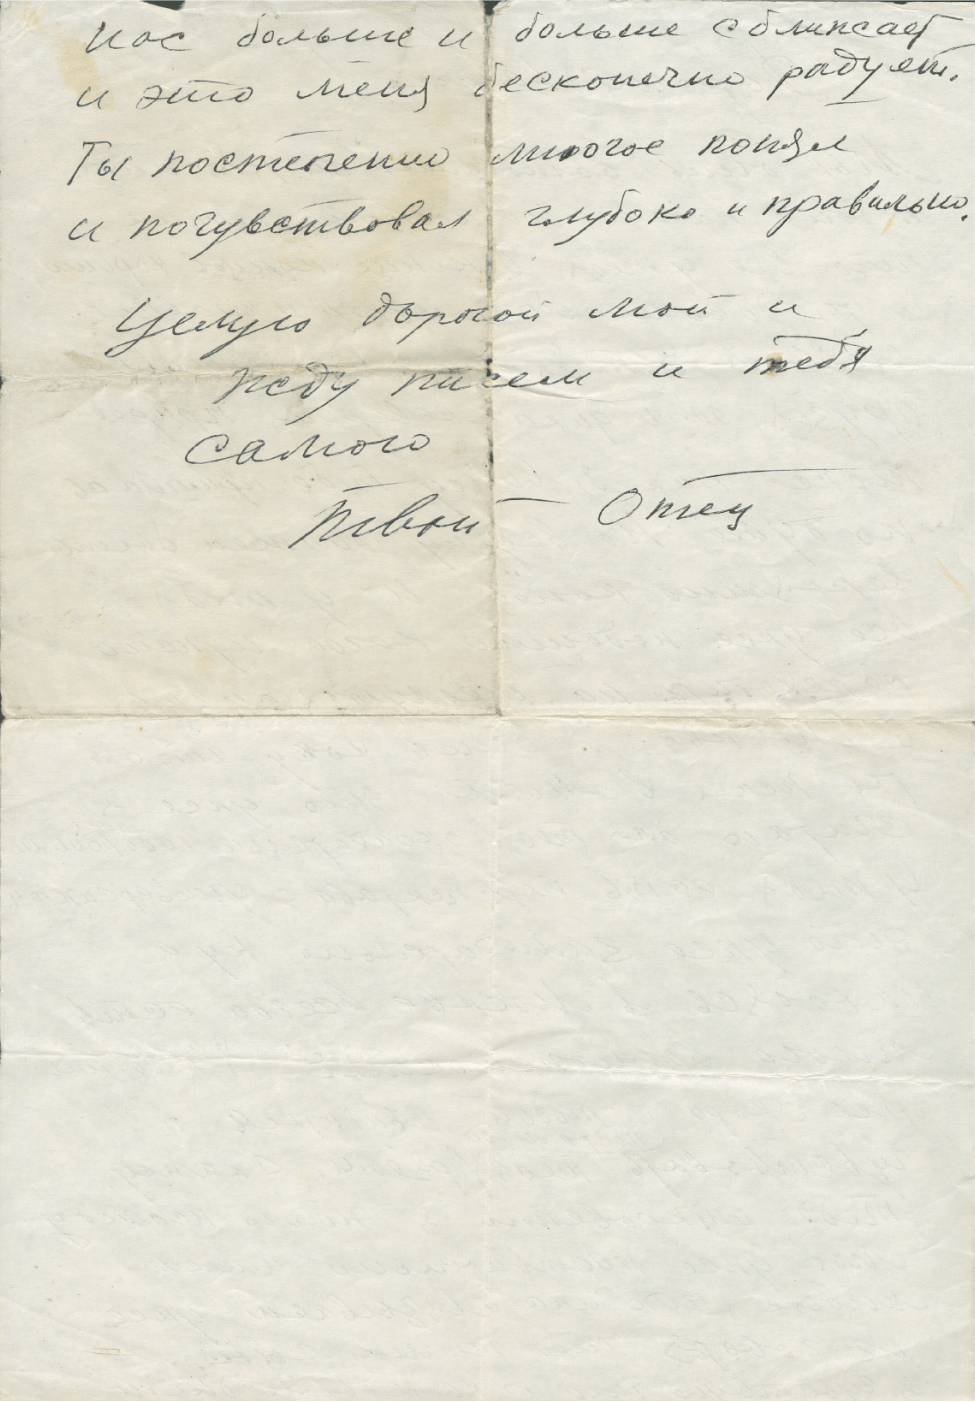 нас больше и больше сближает
и это меня бесконечно радует.
Ты постепенно многое понял
и почувствовал глубоко и правильно.
Целую дорогой мой и
жду писем и тебя
самого
Твой Отец